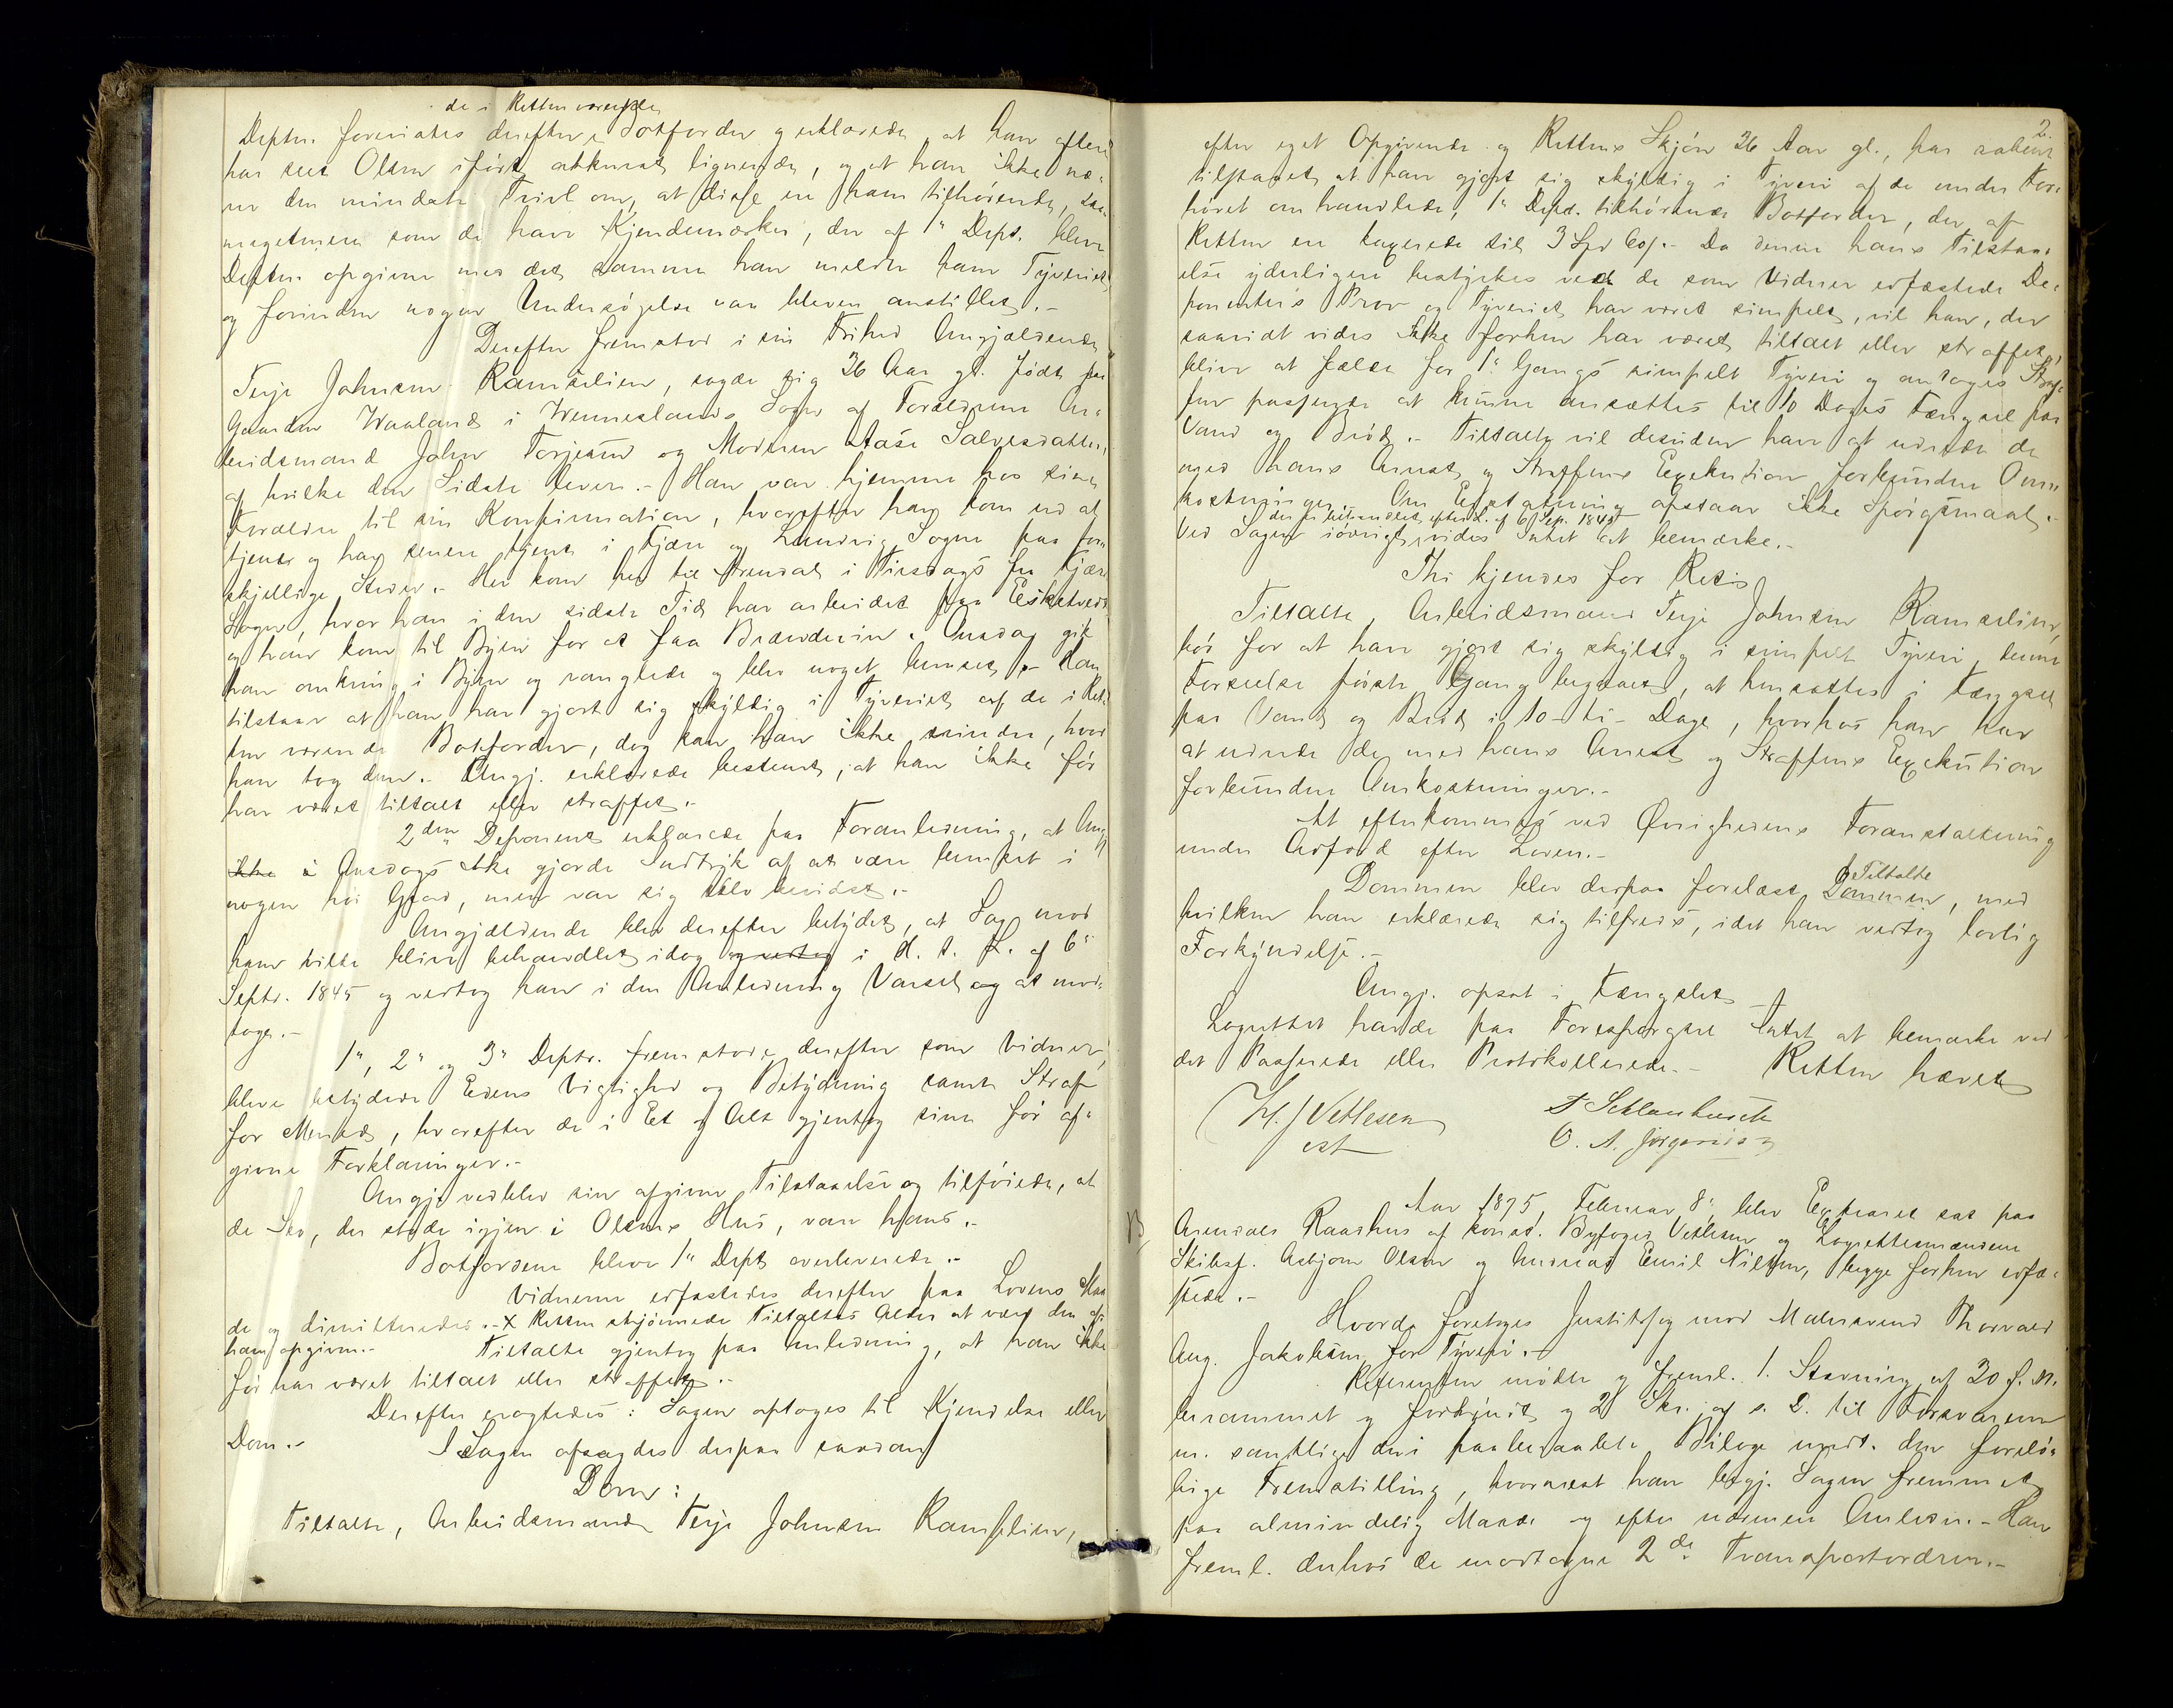 de i Retten værende
Depten. forevistes derefter Botforder og erklærede, at han oftere
har seet Olsen iført akkurat lignende, og at han ikke næ-
rer den mindste Tvivl om, at disse ere ham tilhørende, saa-
meget mere som de have Kjendemærker, der af 1ste Dept. bleve
Depten opgivne med det samme han meldte ham Tyveriet
og forinden nogen Undersøgelse var bleven anstillet.-
Derefter fremstod i sin Frihed Angjældende
Terje Johnsen Ramselien, sagde sig 36 Aar gl. født paa
Gaarden Waaland i Wenneslands Sogn af Forældrene Ar-
beidsmand John Torjesen og Moderen Aase Salvesdatter,
af hvilke den Sidste lever.- Han var hjemme hos sine
Forældre til sin Konfirmation, hvorefter han kom ud at
tjene og har senere tjent i Fjære og Landvig Sogne paa for-
skjellige Steder.- Her kom han til Arendal i Tirsdags fra Fjære
Sogn, hvor han i den sidste Tid har arbeidet paa Esketveit
og han kom til Byen for at faa Brændeviin. Onsdag gik
han omkring i Byen og ranglede og blev noget beruset.- Han
tilstaar at han har gjort sig skyldig i Tyveriet af de i Ret-
ten værende Botforder, dog kan han ikke mindes, hvor
han tog dem.- Angj. erklærede bestemt, at han ikke før
har været tiltalt eller straffet.-
2den Deponent erklærede paa Foranledning, at Angj
ikke i Onsdags ikke gjorde Indtryk af at være beruset i
nogen høi Grad, men var sig selv bevidst.-
Angjældende blev derefter betydet, at Sag mod
ham vilde blive behandlet idag og vedtog i H. t. L. af 6te
Septr. 1845 og vedtog han i den Anledning Varsel og at mod-
tage.-
1ste, 2den og 3die Deptr. fremstode derefter som Vidner,
bleve betydede Edens Vigtighed og Betydning samt Straf
for Meneed, hvorefter de i Et og Alt gjentog sine før af-
givne Forklaringer.-
Angj. vedblev sin afgivne Tilstaaelse og tilføiede, at
de Sko, der stode igjen i Olsens Hus, vare hans.-
Botforderne bleve 1ste Dept overleverede.-
Vidnerne edfæstedes derefter paa Lovens Maa-
de og dimitteredes.- X Retten skjønnede Tiltaltes Alder at være den af
ham opgivne.- Tiltalte gjentog paa Anledning, at han ikke
før har været tiltalt eller straffet.-
Derefter eragtedes: Sagen optages til Kjendelse eller
Dom.- I Sagen afsagdes derpaa saadan
Dom:
Tiltalte, Arbeidsmand Terje Johnsen Ramselien,
2.
efter eget Opgivende og Rettens Skjøn 36 Aar gl., har aabent
tilstaaet at have gjort sig skyldig i Tyveri af de under For-
høret omhandlede, 1ste Dept. tilhørende Botforder, der af
Retten ere taxerede til 3 Spd 60 s.- Da denne hans Tilstaa-
else yderligere bestyrkes ved de som Vidner edfæstede De-
ponenters Prov og Tyveriet har været simpelt, vil han, der
saavidt vides ikke forhen har været tiltalt eller straffet,
blive at fælde for 1ste Gangs simpelt Tyveri og antages Straf-
fen passende at kunne ansættes til 10 Dages Fængsel paa
Vand og Brød.- Tiltalte vil desuden have at udrede de
med hans Arrest og Straffens Exekution forbundne Om-
kostninger. Om Erstatning opstaar ikke Spørgsmaal.-
der er behandlet efter L. af 6 Sep. 1845
Ved Sagen iøvrigt vides Intet at bemærke.-
Thi kjendes for Ret:
Tiltalte, Arbeidsmand Terje Johnsen Ramselien,
bør for at have gjort sig skyldig i simpelt Tyveri, denne
Forseelse første Gang begaaet, at hensættes i Fængsel
paa Vand og Brød i 10 - ti - Dage, hvorhos han har
at udrede de med hans Arrest og Straffens Exekution
forbundne Omkostninger.-
At efterkommes ved Øvrighedens Foranstaltning
under Adfærd efter Loven.-
Tiltalte
Dommen blev derpaa forelæst Dommen, med
hvilken han erklærede sig tilfreds, idet han vedtog lovlig
Forkyndelse.-
Angj. opsat i Fængslet.-
Lagrettet havde paa Forespørgsel Intet at bemærke ved
det Passerede eller Protokollerede.- Retten hævet
H. J Vetlesen
cst
F Schlanbusch
O. A. Jørgensen
B
Aar 1875, Februar 8de, blev Extraret sat paa
Arendals Raadhus af konst. Byfoged Vetlesen og Lagrettesmændene
Skibsf. Asbjørn Olsen og Andreas Emil Nilsen, begge forhen edfæ-
stede.-
Hvorda foretoges Justitssag mod Malersvend Thorvald
Aug. Jakobsen for Tyveri.-
Referenten mødte og freml. 1. Stævning af 30 f. M.
berammet og forkyndt og 2 Skr. af s. D. til Forsvareren
m. samtlige deri paaberaabte Bilage undt. den foreløb-
bige Fremstilling, hvornæst han begj. Sagen fremmet
paa almindelig Maade og efter nærmere Anledn.- Han
freml. derhos de modtagne 2de Transportordrer.-